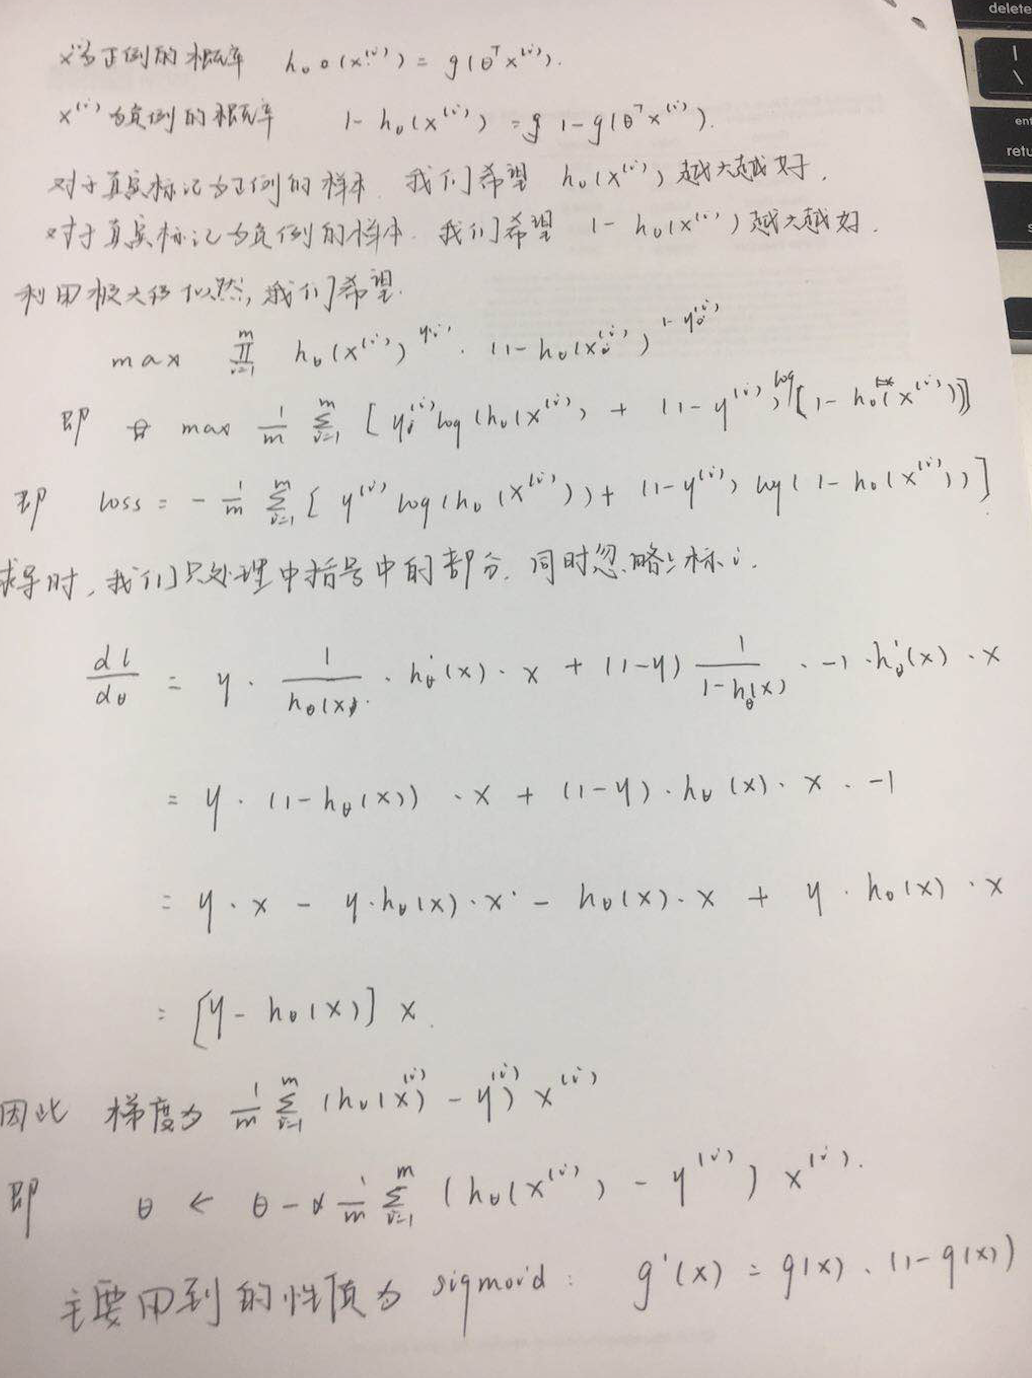 x⁽ⁱ⁾为正例的概率 h_θ(x⁽ⁱ⁾) = g(θᵀx⁽ⁱ⁾).
x⁽ⁱ⁾为负例的概率 1 - h_θ(x⁽ⁱ⁾) = 1 - g(θᵀx⁽ⁱ⁾).
对于真实标记为正例的样本, 我们希望 h_θ(x⁽ⁱ⁾) 越大越好.
对于真实标记为负例的样本. 我们希望 1 - h_θ(x⁽ⁱ⁾) 越大越好.
利用极大似然, 我们希望.
max ∏_{i=1}^{m} h_θ(x⁽ⁱ⁾)^{y⁽ⁱ⁾} · (1 - h_θ(x⁽ⁱ⁾))^{1-y⁽ⁱ⁾}
即 max 1/m ∑_{i=1}^{m} [y⁽ⁱ⁾ log(h_θ(x⁽ⁱ⁾) + (1-y⁽ⁱ⁾) log[1 - h_θ(x⁽ⁱ⁾)]]
即 loss = - 1/m ∑_{i=1}^{m} [y⁽ⁱ⁾ log(h_θ(x⁽ⁱ⁾)) + (1-y⁽ⁱ⁾) log(1 - h_θ(x⁽ⁱ⁾))]
求导时, 我们只处理中括号中的部分. 同时忽略上标i.
dl/dθ = y · 1/h_θ(x) · h_θ'(x) · x + (1-y) 1/(1-h_θ(x)) · -1 · h_θ'(x) · x
= y · (1-h_θ(x)) · x + (1-y) · h_θ(x) · x · -1
= y · x - y · h_θ(x) · x - h_θ(x) · x + y · h_θ(x) · x
= [y - h_θ(x)] x.
因此 梯度为 1/m ∑_{i=1}^{m} (h_θ(x⁽ⁱ⁾) - y⁽ⁱ⁾) x⁽ⁱ⁾
即 θ ← θ - α 1/m ∑_{i=1}^{m} (h_θ(x⁽ⁱ⁾) - y⁽ⁱ⁾) x⁽ⁱ⁾.
主要用到的性质为 sigmoid: g'(x) = g(x) · (1-g(x))
delete